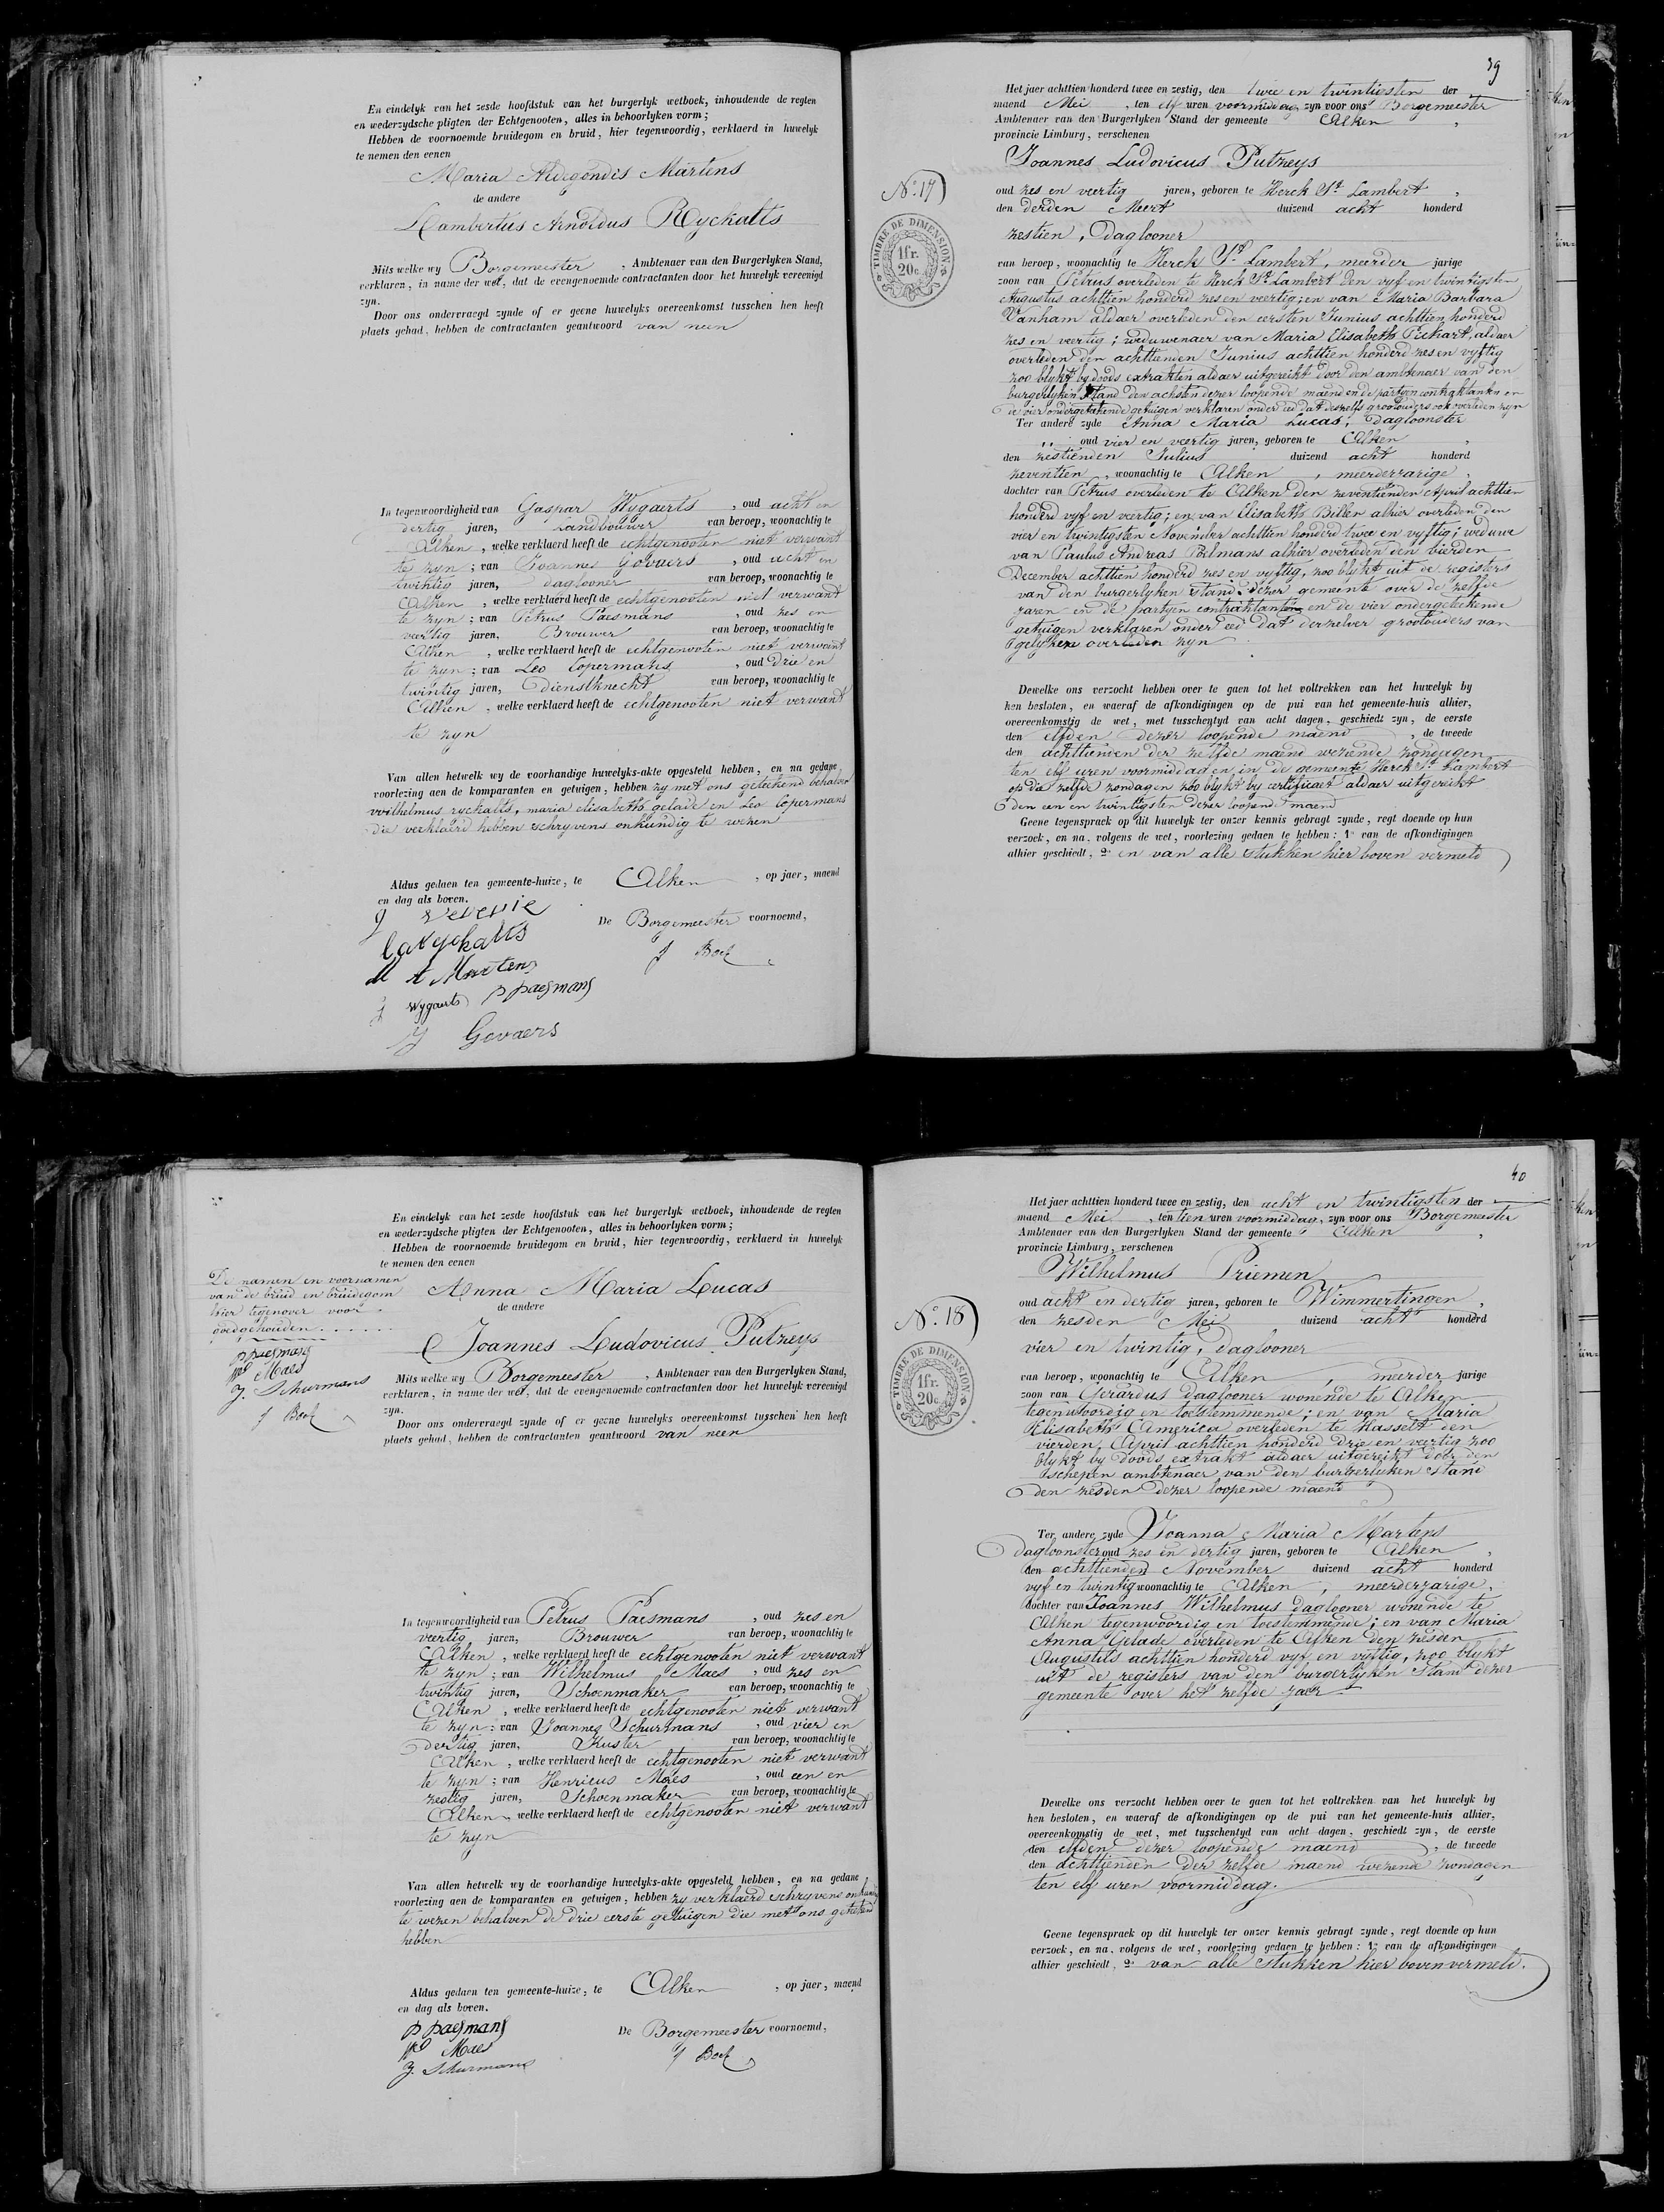 En eindelyk van het zesde hoofdstuk van het burgerlyk wetboek, inhoudende de regten
en wederzydsche pligten der Echtgenooten, alles in behoorlyken vorm;
Hebben de voornoemde bruidegom en bruid, hier tegenwoordig, verklaerd in huwelyk
te nemen den eenen
Maria Aldegondis Martens
de andere
Lambertus Arnoldus Ryckalts
Mits welke wy Borgemeester, Ambtenaer van den Burgerlyken Stand,
verklaren, in name der wet, dat de evengenoemde contractanten door het huwelyk vereenigd
zyn.
Door ons ondervraegd zynde of er geene huwelyks overeenkomst tusschen hen heeft
plaets gehad, hebben de contractanten geantwoord van neen
In tegenwoordigheid van Gaspar Wygaerts, oud acht en
dertig jaren, Landbouwer van beroep, woonachtig te
Alken, welke verklaerd heeft de echtgenooten niet verwant
te zyn; van Joannes Govaers, oud acht en
twintig jaren, daglooner van beroep, woonachtig te
Alken, welke verklaerd heeft de echtgenooten niet verwant
te zyn; van Petrus Paesmans, oud zes en
veertig jaren, Brouwer van beroep, woonachtig te
Alken, welke verklaerd heeft de echtgenooten niet verwant
te zyn; van Leo Copermans, oud drie en
twintig jaren, Dienstknecht van beroep, woonachtig te
Alken, welke verklaerd heeft de echtgenooten niet verwant
te zyn
Van allen hetwelk wy de voorhandige huwelyks-akte opgesteld hebben, en na gedane
voorlezing aen de komparanten en getuigen, hebben zy met ons geteekend behalven
wilhelmus ryckalts, maria elisabeth gelade en Leo Copermans
die verklaerd hebben schryvens onkundig te wezen
Aldus gedaen ten gemeente-huize, te Alken, op jaer, maend
en dag als boven.
De Borgemeester voornoemd,
J Boek
M A Martens
J Wygaerts P paesmans
J Govaers
39
Het jaer achttien honderd twee en zestig, den twee en twintigsten der
maend Mei, ten elf uren voormiddag, zyn voor ons Borgemeester
Ambtenaer van den Burgerlyken Stand der gemeente Alken,
provincie Limburg, verschenen
Joannes Ludovicus Putzeys
No. 17
TIMBRE DE DIMENSION
1fr.
20c.
oud zes en veertig jaren, geboren te Herck St. Lambert,
den derden Meert duizend acht honderd
zestien, Daglooner
van beroep, woonachtig te Herck St. Lambert, meerder jarige
zoon van Petrus overleden te Herck St. Lambert den vyf en twintigsten
Augustus achttien honderd zes en veertig; en van Maria Barbara
Vanham aldaer overleden den eersten Junius achttien honderd
zes en veertig; weduwenaer van Maria Elisabeth Pickart, aldaer
overleden den achttienden Junius achttien honderd zes en vyftig
zoo blykt by doods extrakten aldaer uitgereikt door den ambtenaer van den
burgerlyken Stand den achsten dezer loopende maend en de partyen contraktanten en
de vier ondergeteekende getuigen verklaren onder eed dat deszelfs grootouders ook overleden zyn
Ter andere zyde Anna Maria Lucas, Dagloonster
oud vier en veertig jaren, geboren te Alken,
den zestienden Julius duizend acht honderd
zeventien, woonachtig te Alken, meerderjarige,
dochter van Petrus overleden te Alken den zeventienden April achttien
honderd vyf en veertig; en van Elisabeth Billen alhier overleden den
vier en twintigsten November achttien honderd twee en vyftig; weduwe
van Paulus Andreas Poelmans alhier overleden den vierden
December achttien honderd zes en vyftig, zoo blykt uit de registers
van den burgerlyken stand dezer gemeente over de zelfde
jaren en de partyen contraktanten en de vier ondergeteekende
getuigen verklaren onder eed dat derzelver grootouders van
gelyken overleden zyn
Dewelke ons verzocht hebben over te gaen tot het voltrekken van het huwelyk by
hen besloten, en waeraf de afkondigingen op de pui van het gemeente-huis alhier,
overeenkomstig de wet, met tusschentyd van acht dagen, geschiedt zyn, de eerste
den elfden dezer loopende maend, de tweede
den achttienden der zelfde maend wezende zondagen
ten elf uren voormiddag en in de gemeente Herck St. Lambert
op die zelfde zondagen zoo blykt by certificaet aldaer uitgereikt
den een en twintigsten dezer loopende maend
Geene tegenspraek op dit huwelyk ter onzer kennis gebragt zynde, regt doende op hun
verzoek, en na, volgens de wet, voorlezing gedaen te hebben: 1o van de afkondigingen
alhier geschiedt, 2o en van alle stukken hier boven vermeld
En eindelyk van het zesde hoofdstuk van het burgerlyk wetboek, inhoudende de regten
en wederzydsche pligten der Echtgenooten, alles in behoorlyken vorm;
Hebben de voornoemde bruidegom en bruid, hier tegenwoordig, verklaerd in huwelyk
te nemen den eenen
Anna Maria Lucas
de andere
Joannes Ludovicus Putzeys
De namen en voornamen
van de bruid en bruidegom
hier tegenover voor
goedgehouden
P paesmans
W Maes
J. Schurmans
J Boek
Mits welke wy Borgemeester, Ambtenaer van den Burgerlyken Stand,
verklaren, in name der wet, dat de evengenoemde contractanten door het huwelyk vereenigd
zyn.
Door ons ondervraegd zynde of er geene huwelyks overeenkomst tusschen hen heeft
plaets gehad, hebben de contractanten geantwoord van neen
In tegenwoordigheid van Petrus Paesmans, oud zes en
veertig jaren, Brouwer van beroep, woonachtig te
Alken, welke verklaerd heeft de echtgenooten niet verwant
te zyn; van Wilhelmus Maes, oud zes en
twintig jaren, Schoenmaker van beroep, woonachtig te
Alken, welke verklaerd heeft de echtgenooten niet verwant
te zyn; van Joannes Schurmans, oud vier en
dertig jaren, Kuster van beroep, woonachtig te
Alken, welke verklaerd heeft de echtgenooten niet verwant
te zyn; van Henricus Maes, oud een en
zestig jaren, Schoenmaker van beroep, woonachtig te
Alken, welke verklaerd heeft de echtgenooten niet verwant
te zyn
Van allen hetwelk wy de voorhandige huwelyks-akte opgesteld hebben, en na gedane
voorlezing aen de komparanten en getuigen, hebben zy verklaerd schryvens onkundig
te wezen behalven de drie eerste getuigen die met ons geteekend
hebben
Aldus gedaen ten gemeente-huize, te Alken, op jaer, maend
en dag als boven.
De Borgemeester voornoemd,
P paesmans
W Maes
J. Schurmans
J Boek
40
Het jaer achttien honderd twee en zestig, den acht en twintigsten der
maend Mei, ten tien uren voormiddag, zyn voor ons Borgemeester
Ambtenaer van den Burgerlyken Stand der gemeente Alken,
provincie Limburg, verschenen
Wilhelmus Priemen
No. 18
TIMBRE DE DIMENSION
1fr.
20c.
oud acht en dertig jaren, geboren te Wimmertingen,
den zesden Mei duizend acht honderd
vier en twintig, daglooner
van beroep, woonachtig te Alken, meerder jarige
zoon van Gerardus daglooner wonende te Alken
tegenwoordig en toestemmende; en van Maria
Elisabeth America overleden te Hasselt den
vierden April achttien honderd drie en veertig zoo
blykt by doods extrakt aldaer uitgereikt door den
schepen ambtenaer van den burgerlyken stand
den zesden dezer loopende maend
Ter andere zyde Joanna Maria Martens
dagloonster oud zes en dertig jaren, geboren te Alken,
den achttienden November duizend acht honderd
vyf en twintig woonachtig te Alken, meerderjarige,
dochter van Joannes Wilhelmus daglooner wonende te
Alken tegenwoordig en toestemmende; en van Maria
Anna Gelade overleden te Alken den zesden
Augustus achttien honderd vyf en vyftig, zoo blykt
uit de registers van den burgerlyken Stand dezer
gemeente over het zelfde jaer
Dewelke ons verzocht hebben over te gaen tot het voltrekken van het huwelyk by
hen besloten, en waeraf de afkondigingen op de pui van het gemeente-huis alhier,
overeenkomstig de wet, met tusschentyd van acht dagen, geschiedt zyn, de eerste
den elfden dezer loopende maend, de tweede
den achttienden der zelfde maend wezende zondagen
ten elf uren voormiddag.
Geene tegenspraek op dit huwelyk ter onzer kennis gebragt zynde, regt doende op hun
verzoek, en na, volgens de wet, voorlezing gedaen te hebben: 1o van de afkondigingen
alhier geschiedt, 2o van alle stukken hier boven vermeld.